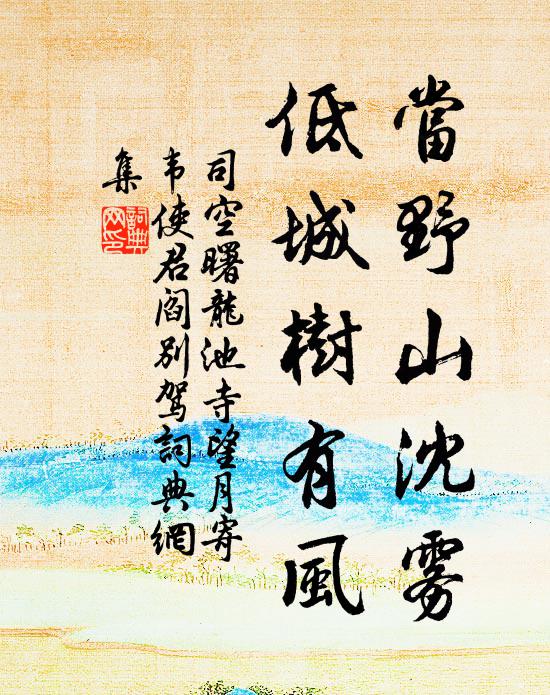 當野山沈霧
低城樹有風
司空曙龍池寺望月寄
韦使君閻別駕詞典網
集
詞典
网印